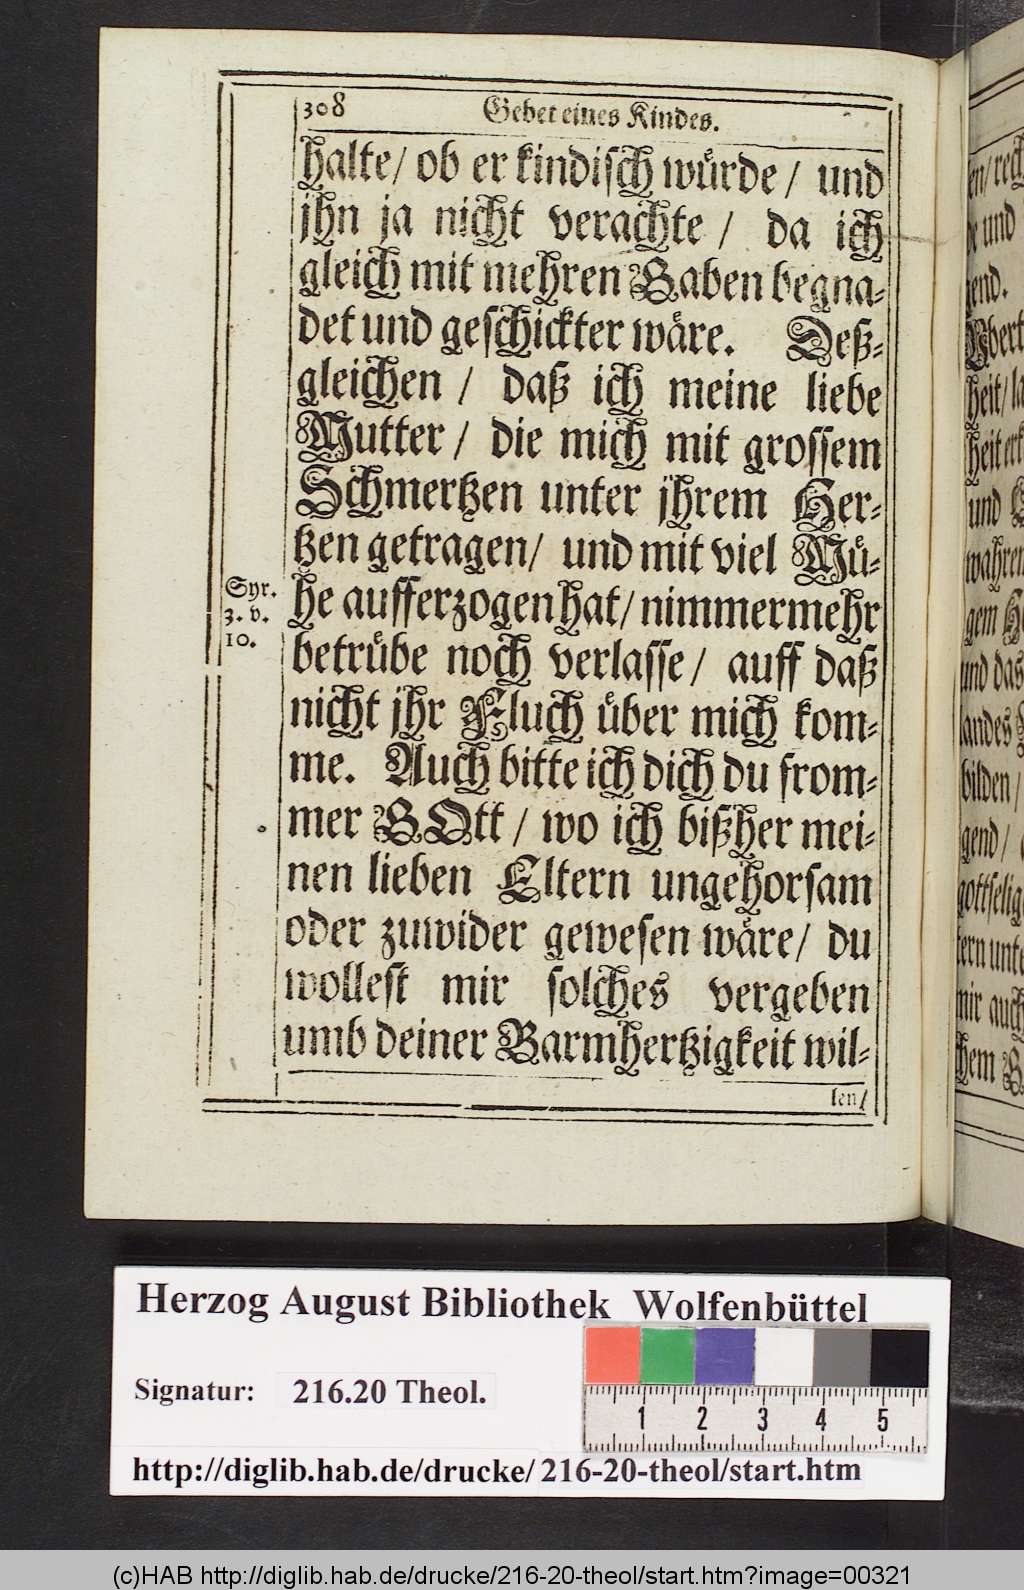 308 Gebet eines Kindes.
halte/ ob er kindisch wuͤrde/ und
jhn ja nicht verachte/ da ich
gleich mit mehren Gaben begna-
det und geschickter waͤre. Deß-
gleichen/ daß ich meine liebe
Mutter/ die mich mit grossem
Schmertzen unter jhrem Her-
tzen getragen/ und mit viel Muͤ-
he aufferzogen hat/ nimmermehr
betruͤbe noch verlasse/ auff daß
nicht jhr Fluch uͤber mich kom-
me. Auch bitte ich dich du from-
mer GOtt/ wo ich bißher mei-
nen lieben Eltern ungehorsam
oder zuwider gewesen waͤre/ du
wollest mir solches vergeben
umb deiner Barmhertzigkeit wil-
len/
Syr.
3. v.
10.
Herzog August Bibliothek Wolfenbüttel
Signatur: 216.20 Theol.
1 2 3 4 5
http://diglib.hab.de/drucke/216-20-theol/start.htm
(c)HAB http://diglib.hab.de/drucke/216-20-theol/start.htm?image=00321